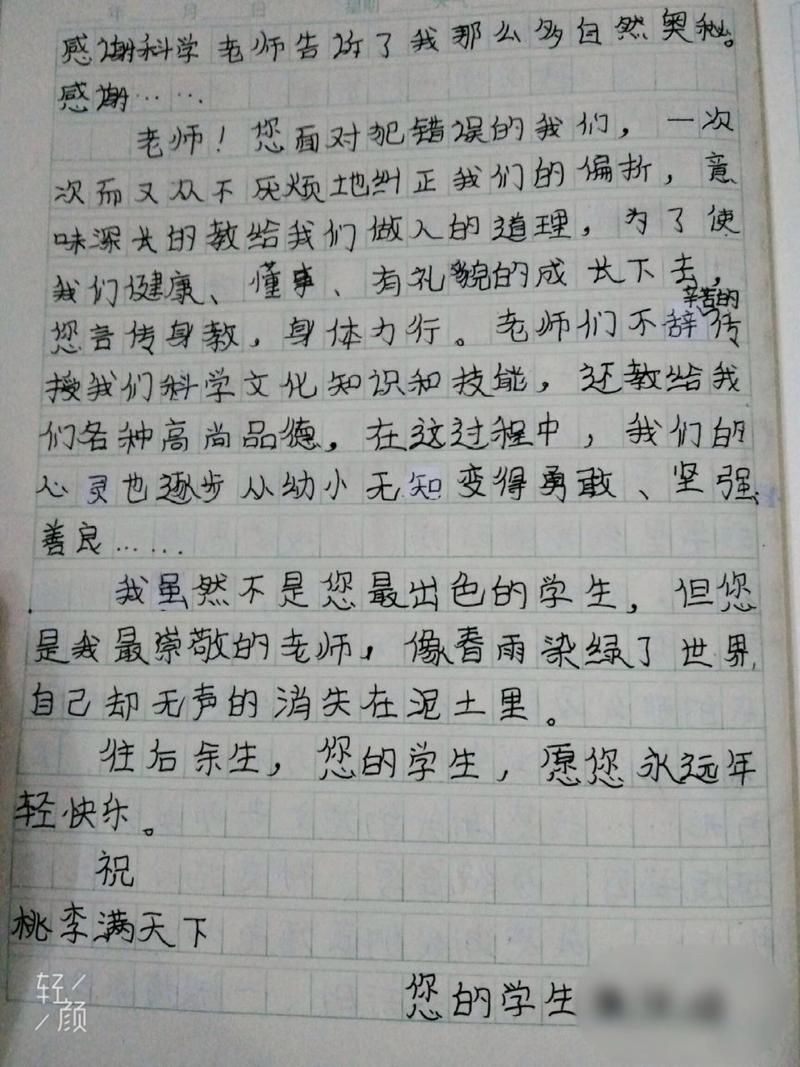 年 月 日 星期 天气
感谢科学老师告诉了我那么多自然奥秘。
感谢……
老师！您面对犯错误的我们，一次
次而又从不厌烦地纠正我们的偏折，意
味深长的教给我们做人的道理，为了使
我们健康、懂事、有礼貌的成长下去，
您言传身教，身体力行。老师们不辞辛苦的传
授我们科学文化知识和技能，还教给我
们各种高尚品德，在这过程中，我们的
心灵也逐步从幼小无知变得勇敢、坚强、
善良……
我虽然不是您最出色的学生，但您
是我最崇敬的老师，像春雨染绿了世界，
自己却无声的消失在泥土里。
往后余生，您的学生，愿您永远年
轻快乐。
祝
桃李满天下
您的学生
轻颜